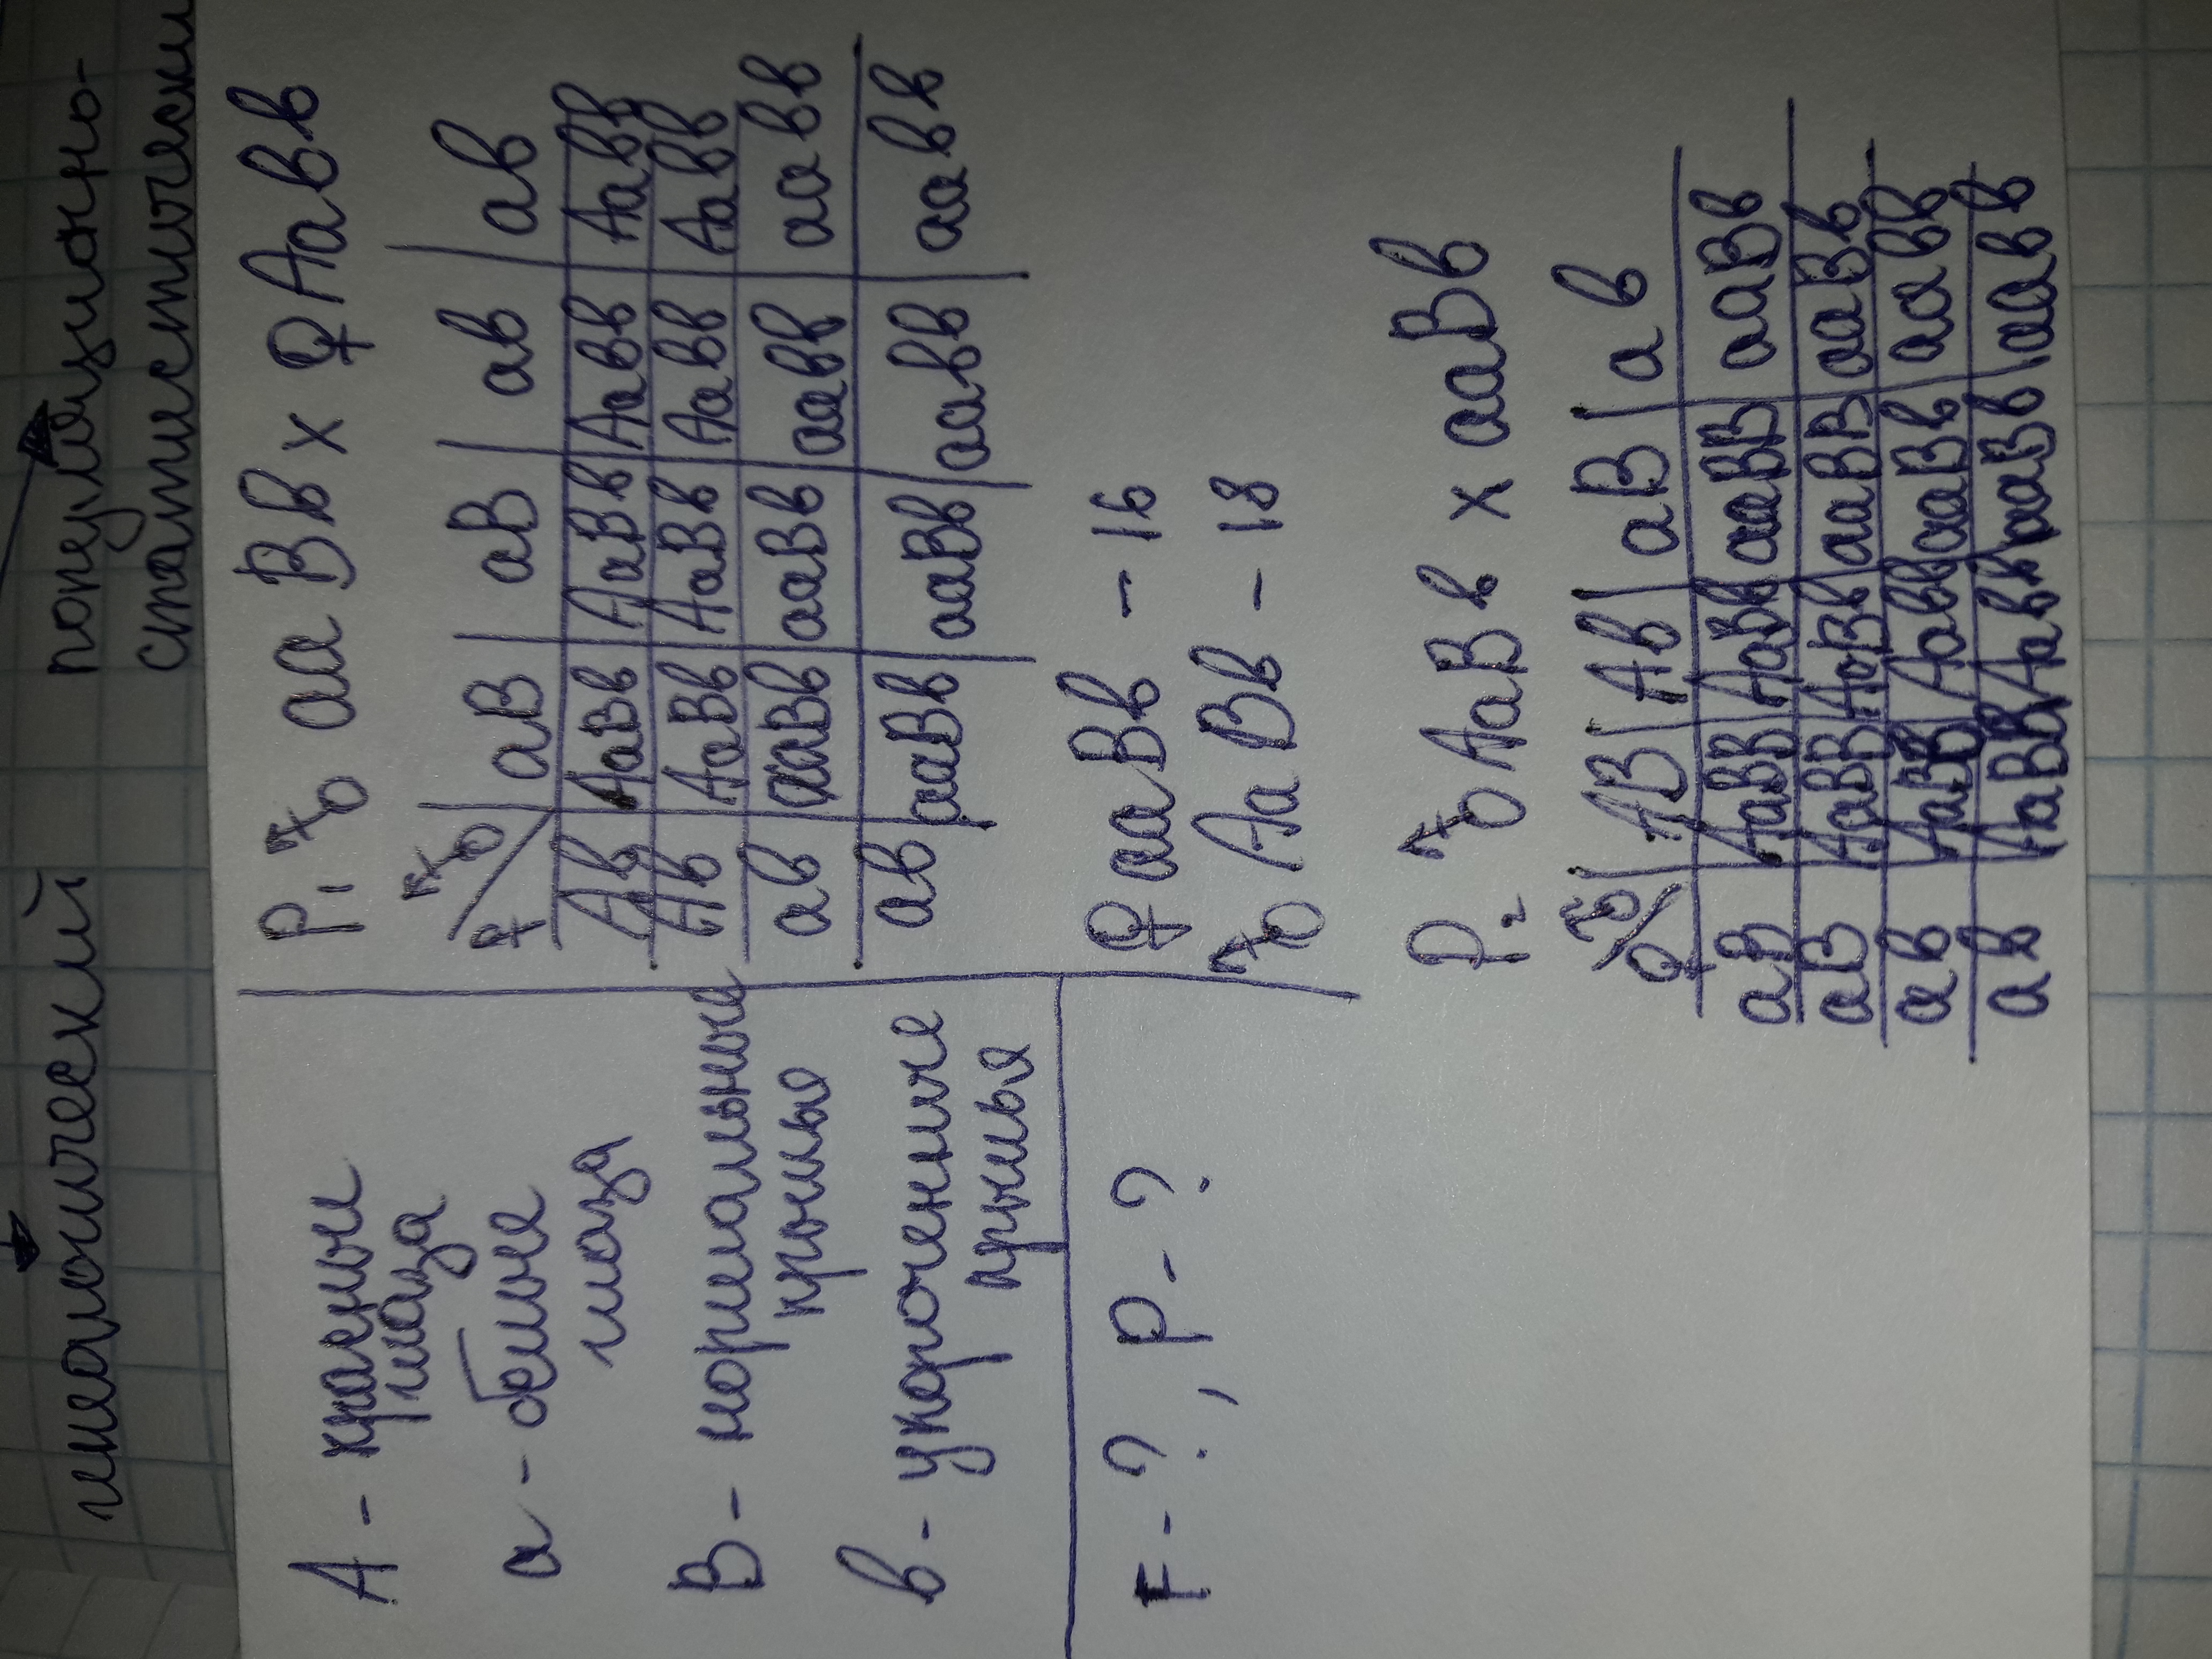 генеалогический
популяционно-
статистически
A - красные
глаза
a - белые
глаза
B - нормальные
крылья
в - укороченные
крылья
F - ?, P - ?
P₁ ♂ aaBв x ♀ Aaвв
♀/♂ aB aB aв aв
Aв AaBв AaBв Aaвв Aaвв
Aв AaBв AaBв Aaвв Aaвв
aв aaBв aaBв aaвв aaвв
aв aaBв aaBв aaвв aaвв
♀ aaBв - 16
♂ AaBв - 18
P₂ ♂ AaBв x aaBв
♀/♂ AB Aв aB aв
aB AaBB AaBв aaBB aaBв
aB AaBB AaBв aaBB aaBв
aв AaBв Aaвв aaBв aaвв
aв AaBв Aaвв aaBв aaвв